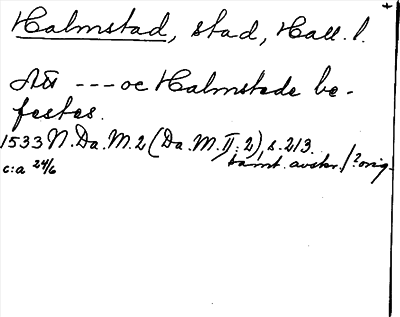 Halmstad, stad, Hall. l.
Att --- oc Halmstade be-
festes.
1533 N. Da. M. 2 (Da. M. II: 2), s. 213.
c:a 24/6 samt. avskr. / ? orig.